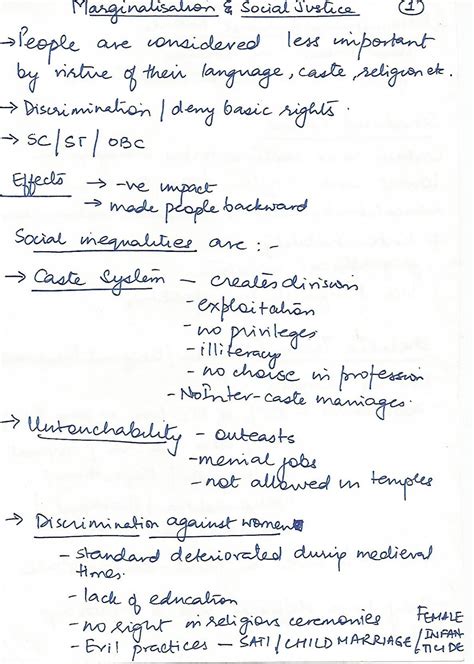 Marginalisation & Social Justice (1)
→ People are considered less important
by virtue of their language, caste, religion etc.
→ Discrimination / deny basic rights.
→ SC / ST / OBC
Effects → -ve impact
→ made people backward
Social inequalities are :-
→ Caste System - creates division
- exploitation
- no privileges
- illiteracy
- no choise in profession
- No Inter-caste marriages.
→ Untouchability - outcasts
- menial jobs
- not allowed in temples
→ Discrimination against women
- standard deteriorated during medieval
times.
- lack of education
- no right in religious ceremonies
- Evil practices - SATI / CHILD MARRIAGE / FEMALE
INFAN
TICIDE